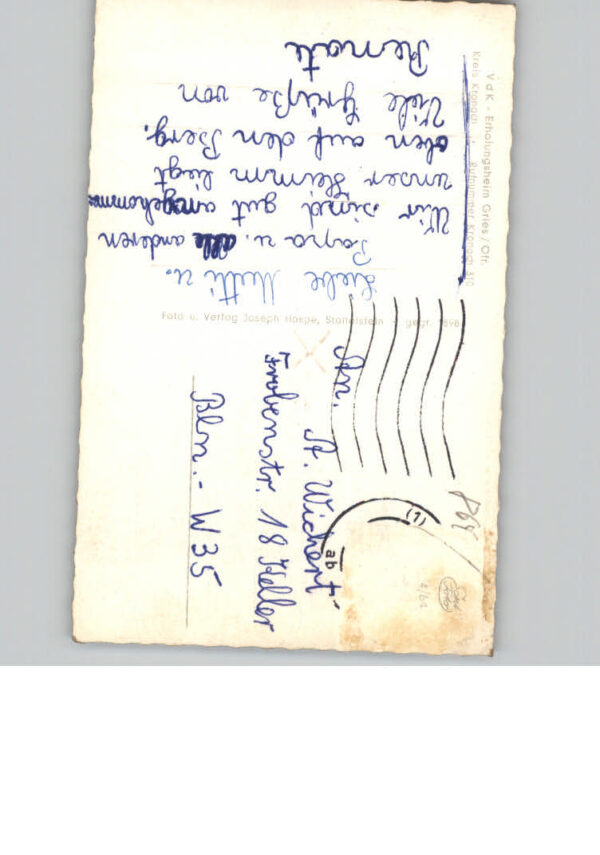 VdK - Erholungsheim Gries / Ofr.
Kreis Kronach Rufnummer Kronach 310
Liebe Mutti u.
Papa u. alle anderen
Wir sind gut angekommen
unser Heim liegt
oben auf den Berg.
Viele Grüße von
Renate
Foto u. Verlag Joseph Hospe, Staffelstein gegr. 1898
An. A. Wichert
Frobenstr. 18 Keller
Bln. - W35
(1)
ab
4/62